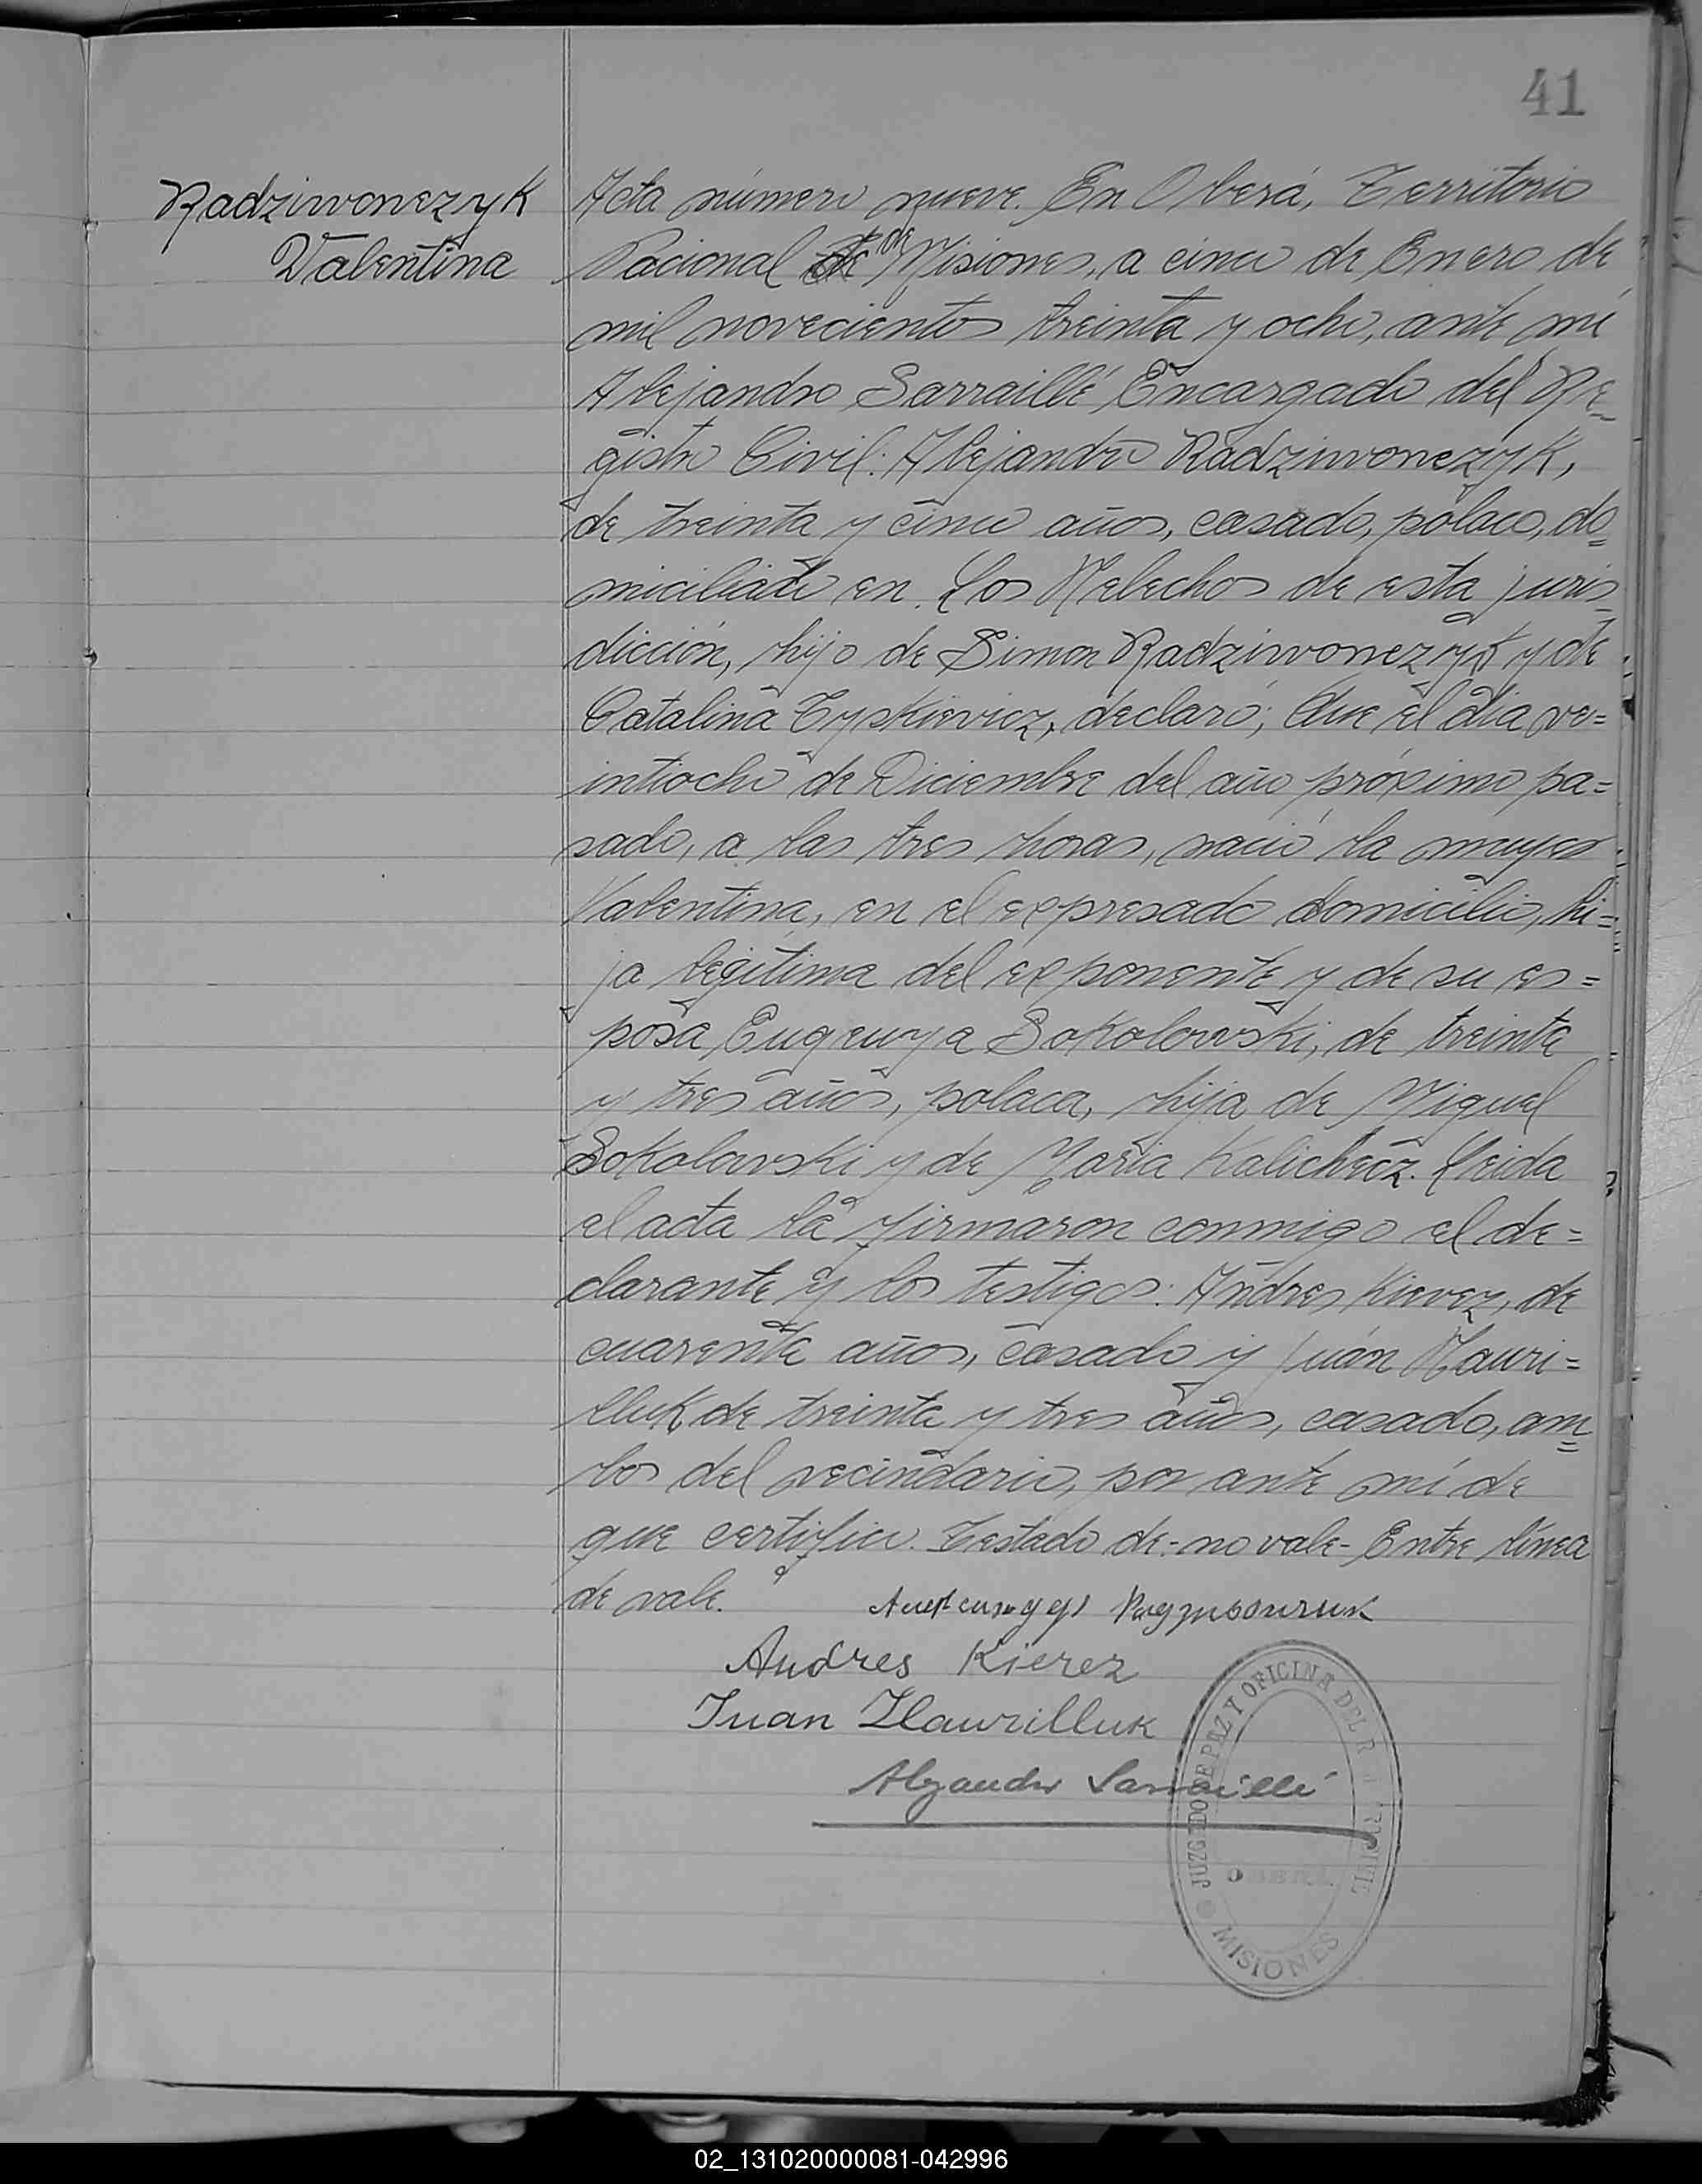 41
Radziwonczyk
Valentina
Acta número nueve. En Oberá, Territorio
Nacional de de Misiones, a cinco de Enero de
mil novecientos treinta y ocho, ante mí
Alejandro Sarraillé Encargado del Re-
gistro Civil: Alejandro Radziwonczyk,
de treinta y cinco años, casado, polaco, do=
miciliado en Los Helechos de esta juris-
dicción, hijo de Simon Radziwonczyk y de
Catalina Tyskievicz, declaró; Que el día ve=
intiocho de Diciembre del año próximo pa=
sado, a las tres horas, nació la mujer
Valentina, en el expresado domicilio, hi=
ja legítima del exponente y de su es=
posa Eugenya Sokolowski, de treinta
y tres años, polaca, hija de Miguel
Sokolowski y de María Kalichecz. Leida
el acta la firmaron conmigo el de=
clarante y los testigos: Andres Kierez, de
cuarenta años, casado y Juan Hauri=
lluk de treinta y tres años, casado, am=
bos del vecindario, por ante mí de
que certifico. Testado de:-no vale- Entre línea
de vale.
Александр Радзивончик
Andres Kierez
Juan Hawrilluk
Alejandro Sarraillé
JUZGADO DE PAZ Y OFICINA DEL R CIVIL
OBERÁ
MISIONES
02_131020000081-042996